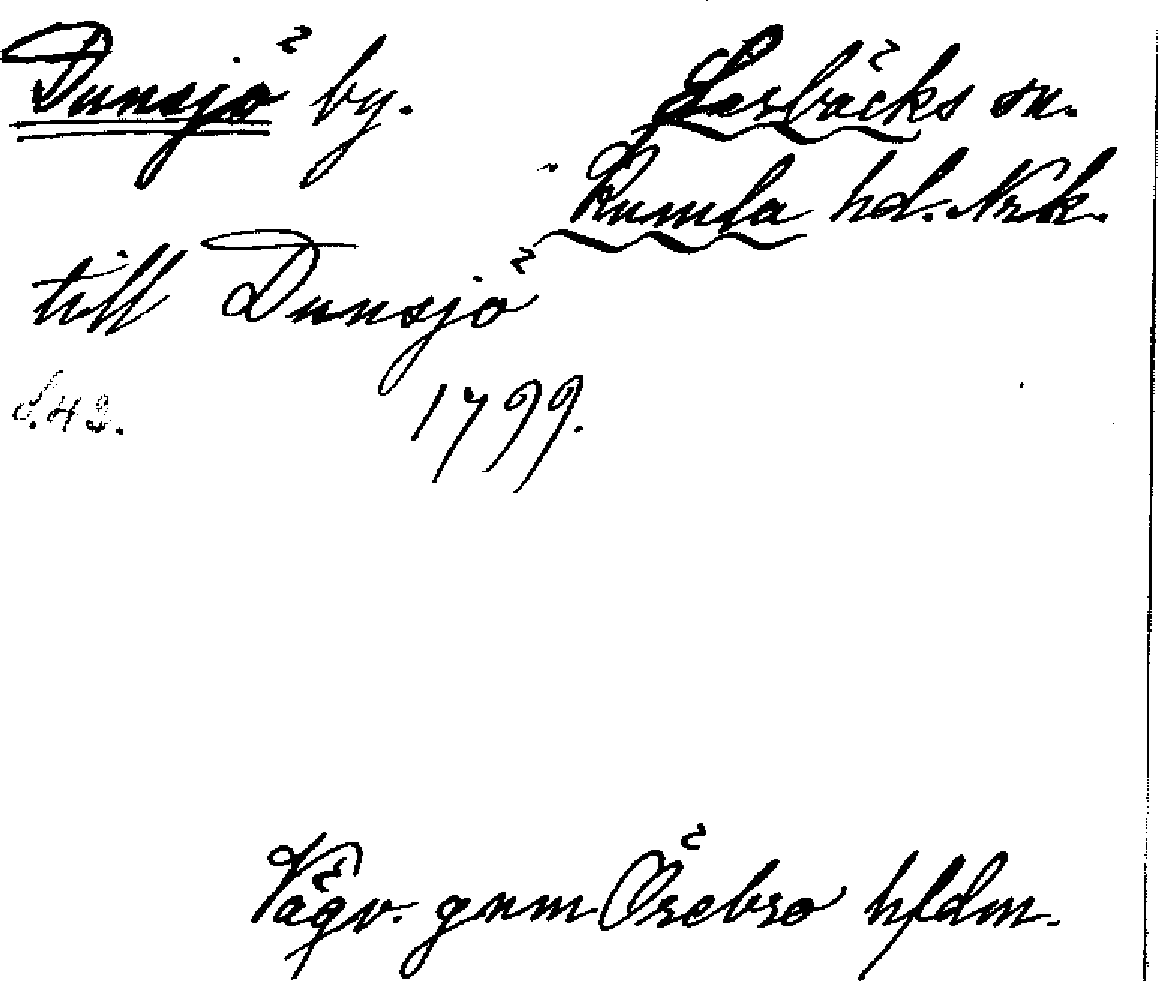 Dunsjö by. Lerbäcks sn.
Kumla hd. Nrk.
till Dunsjö
S. 42. 1799.
Vägv. gnm Örebro hfdm.